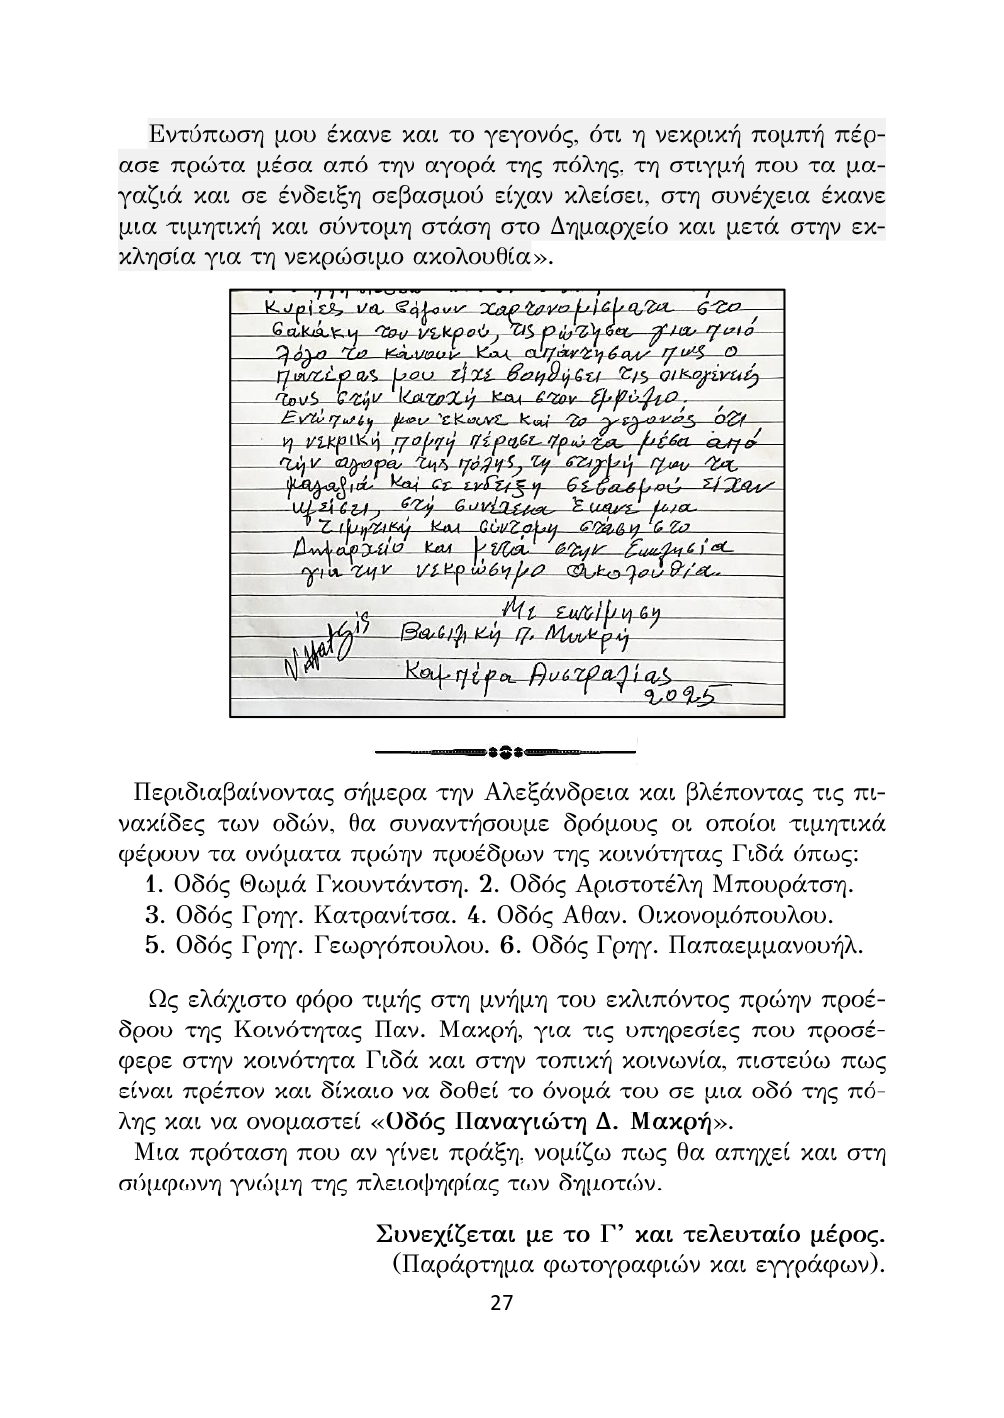 Εντύπωση μου έκανε και το γεγονός, ότι η νεκρική πομπή πέρ-
ασε πρώτα μέσα από την αγορά της πόλης, τη στιγμή που τα μα-
γαζιά και σε ένδειξη σεβασμού είχαν κλείσει, στη συνέχεια έκανε
μια τιμητική και σύντομη στάση στο Δημαρχείο και μετά στην εκ-
κλησία για τη νεκρώσιμο ακολουθία».
Κυρίες να βάζουν χαρτονομίσματα στο
σακάκη του νεκρού, τις ρώτησα για ποιό
λόγο το κάνουν και απάντησαν πως ο
πατέρας μου είχε βοηθήσει τις οικογένειές
τους στήν Κατοχή και στον εμφύλιο.
Εντύπωση μου έκανε και το γεγονός ότι
η νεκρική πομπή πέρασε πρώτα μέσα από
τήν αγορά της πόλης, τη στιγμή που τα
μαγαζιά και σε ένδειξη σεβασμού είχαν
κλείσει, στή συνέχεια έκανε μια
τιμητική και σύντομη στάση στο
Δημαρχείο και μετά στην Εκκλησία
για την νεκρώσημο ακολουθία.
Με εκτίμηση
Βασιλική Π. Μακρή
Καμπέρα Αυστραλίας
2025
Περιδιαβαίνοντας σήμερα την Αλεξάνδρεια και βλέποντας τις πι-
νακίδες των οδών, θα συναντήσουμε δρόμους οι οποίοι τιμητικά
φέρουν τα ονόματα πρώην προέδρων της κοινότητας Γιδά όπως:
1. Οδός Θωμά Γκουντάντση. 2. Οδός Αριστοτέλη Μπουράτση.
3. Οδός Γρηγ. Κατρανίτσα. 4. Οδός Αθαν. Οικονομόπουλου.
5. Οδός Γρηγ. Γεωργόπουλου. 6. Οδός Γρηγ. Παπαεμμανουήλ.
Ως ελάχιστο φόρο τιμής στη μνήμη του εκλιπόντος πρώην προέ-
δρου της Κοινότητας Παν. Μακρή, για τις υπηρεσίες που προσέ-
φερε στην κοινότητα Γιδά και στην τοπική κοινωνία, πιστεύω πως
είναι πρέπον και δίκαιο να δοθεί το όνομά του σε μια οδό της πό-
λης και να ονομαστεί «Οδός Παναγιώτη Δ. Μακρή».
Μια πρόταση που αν γίνει πράξη, νομίζω πως θα απηχεί και στη
σύμφωνη γνώμη της πλειοψηφίας των δημοτών.
Συνεχίζεται με το Γ’ και τελευταίο μέρος.
(Παράρτημα φωτογραφιών και εγγράφων).
27